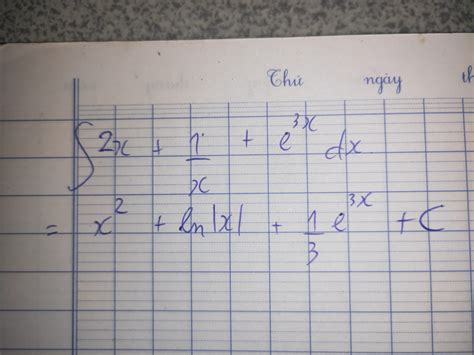 Thứ ngày th
∫ 2x + 1/x + e^{3x} dx
= x^2 + ln|x| + 1/3 e^{3x} + C